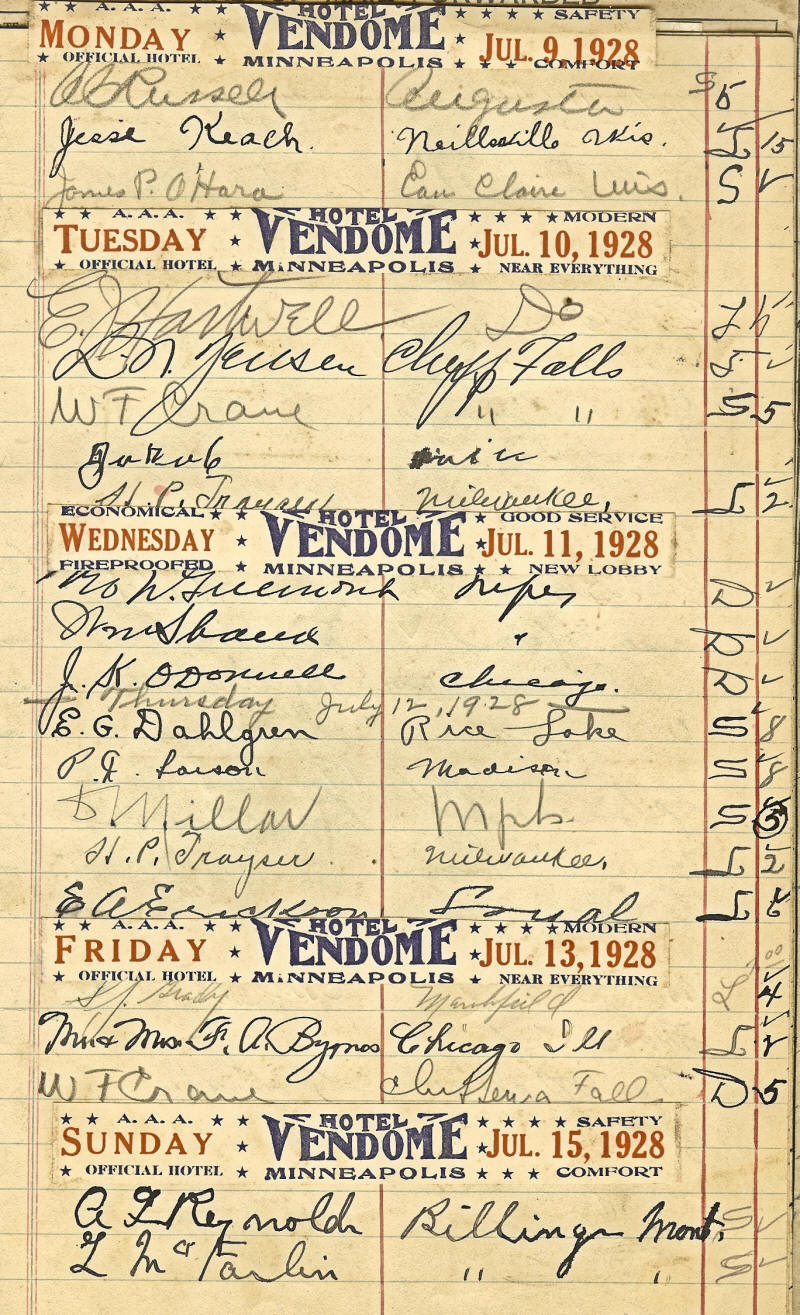 FORWARDED
★ ★ A.A.A. ★ ★ HOTEL ★ ★ ★ ★ SAFETY
MONDAY ★ VENDOME ★ JUL. 9, 1928
★ OFFICIAL HOTEL ★ MINNEAPOLIS ★ ★ ★ COMFORT
Russell Augusta S 5
Jesse Keach. Neillsville Wis. L 15
James P. O'Hara Eau Claire Wis. S ✓
★ ★ A.A.A. ★ ★ HOTEL ★ ★ ★ ★ MODERN
TUESDAY ★ VENDOME ★ JUL. 10, 1928
★ OFFICIAL HOTEL ★ MINNEAPOLIS ★ NEAR EVERYTHING
E. J. Hartwell Do L
L. N. Jensen Chipp Falls ✓
W F Crane " " S 5
Jacob
H. P. Trayser Milwaukee, L 2
ECONOMICAL ★ ★ HOTEL ★ GOOD SERVICE
WEDNESDAY ★ VENDOME ★ JUL. 11, 1928
FIREPROOFED ★ MINNEAPOLIS ★ ★ NEW LOBBY
W. D ✓
Wm Shaud " D ✓
J. K. O'Donnell Chicago. D ✓
Thursday July 12, 1928
E. G. Dahlgren Rice Lake S 8
P. F. Larson Madison S 8
D Millar Mpls. S 5
H. P. Trayser Milwaukee, L 2
E A Erickson Loyal L
★ ★ A.A.A. ★ ★ HOTEL ★ ★ ★ ★ MODERN
FRIDAY ★ VENDOME ★ JUL. 13, 1928
★ OFFICIAL HOTEL ★ MINNEAPOLIS ★ NEAR EVERYTHING
Grady Marshfield L 4
Mr & Mrs. F. A. Byrnes Chicago Ill L
W F Crane Chippewa Fall D 5
★ ★ A.A.A. ★ ★ HOTEL ★ ★ ★ ★ SAFETY
SUNDAY ★ VENDOME ★ JUL. 15, 1928
★ OFFICIAL HOTEL ★ MINNEAPOLIS ★ ★ ★ COMFORT
A L Reynolds Billings Mont. S ✓
L McFarlin " " S ✓